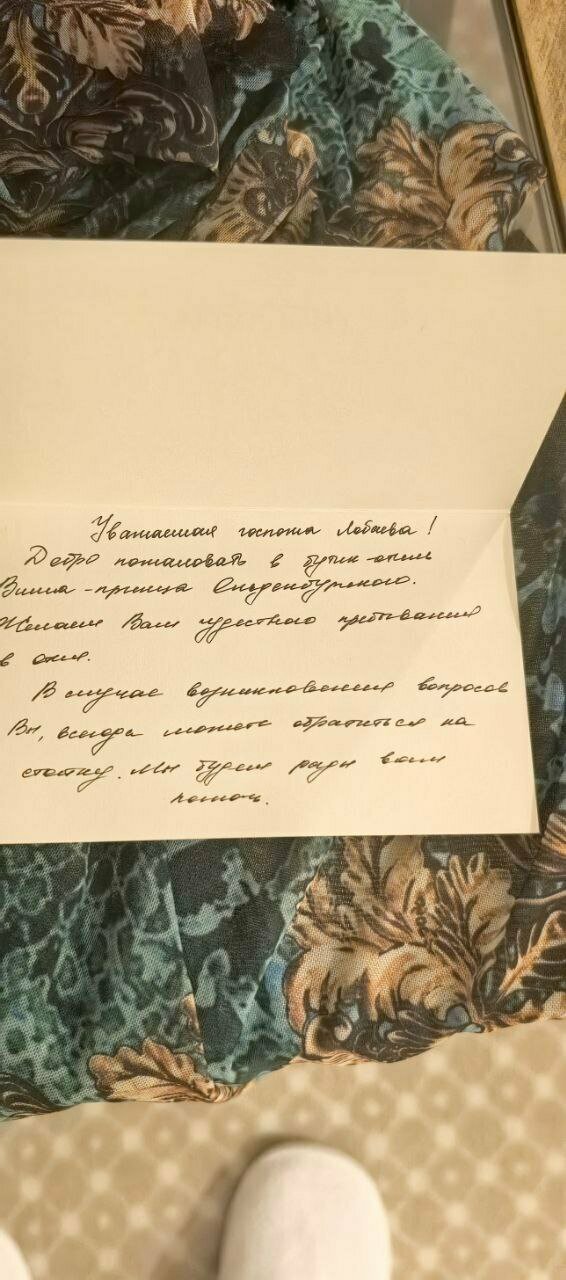 Уважаемая госпожа Лобаева!
Добро пожаловать в бутик-отель
Вилла-принца Ольденбургского.
Желаем Вам чудесного пребывания
в отеле.
В случае возникновения вопросов
Вы, всегда можете обратиться на
стойку. Мы будем рады вам
помочь.